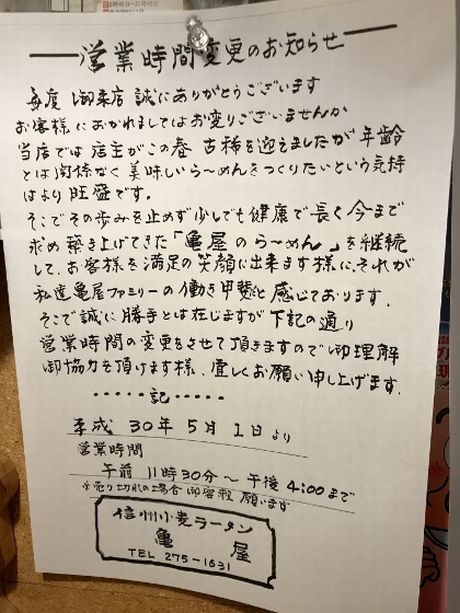 営業時間変更のお知らせ
毎度 御来店 誠にありがとうございます
お客様におかれましてはお変りございませんか
当店では 店主がこの春 古稀を迎えましたが 年齢
とは関係なく 美味しいら〜めんをつくりたいという気持
はより 旺盛です。
そこでその歩みを止めず少しでも健康で長く今まで
求め築き上げてきた「亀屋のら〜めん」を継続
して、お客様を満足の笑顔に出来ます様に、それが
私達亀屋ファミリーの働き甲斐と感じております。
そこで誠に勝手とは存じますが 下記の通り
営業時間の変更をさせて頂きますので御理解
御協力を頂けます様、宜しくお願い申し上げます。
・・・・・記・・・・・
平成 30年 5月1日より
営業時間
午前 11時30分〜午後4:00まで
※売り切れの場合 御容赦 願います
信州小麦ラータン
亀屋
TEL 275-1631